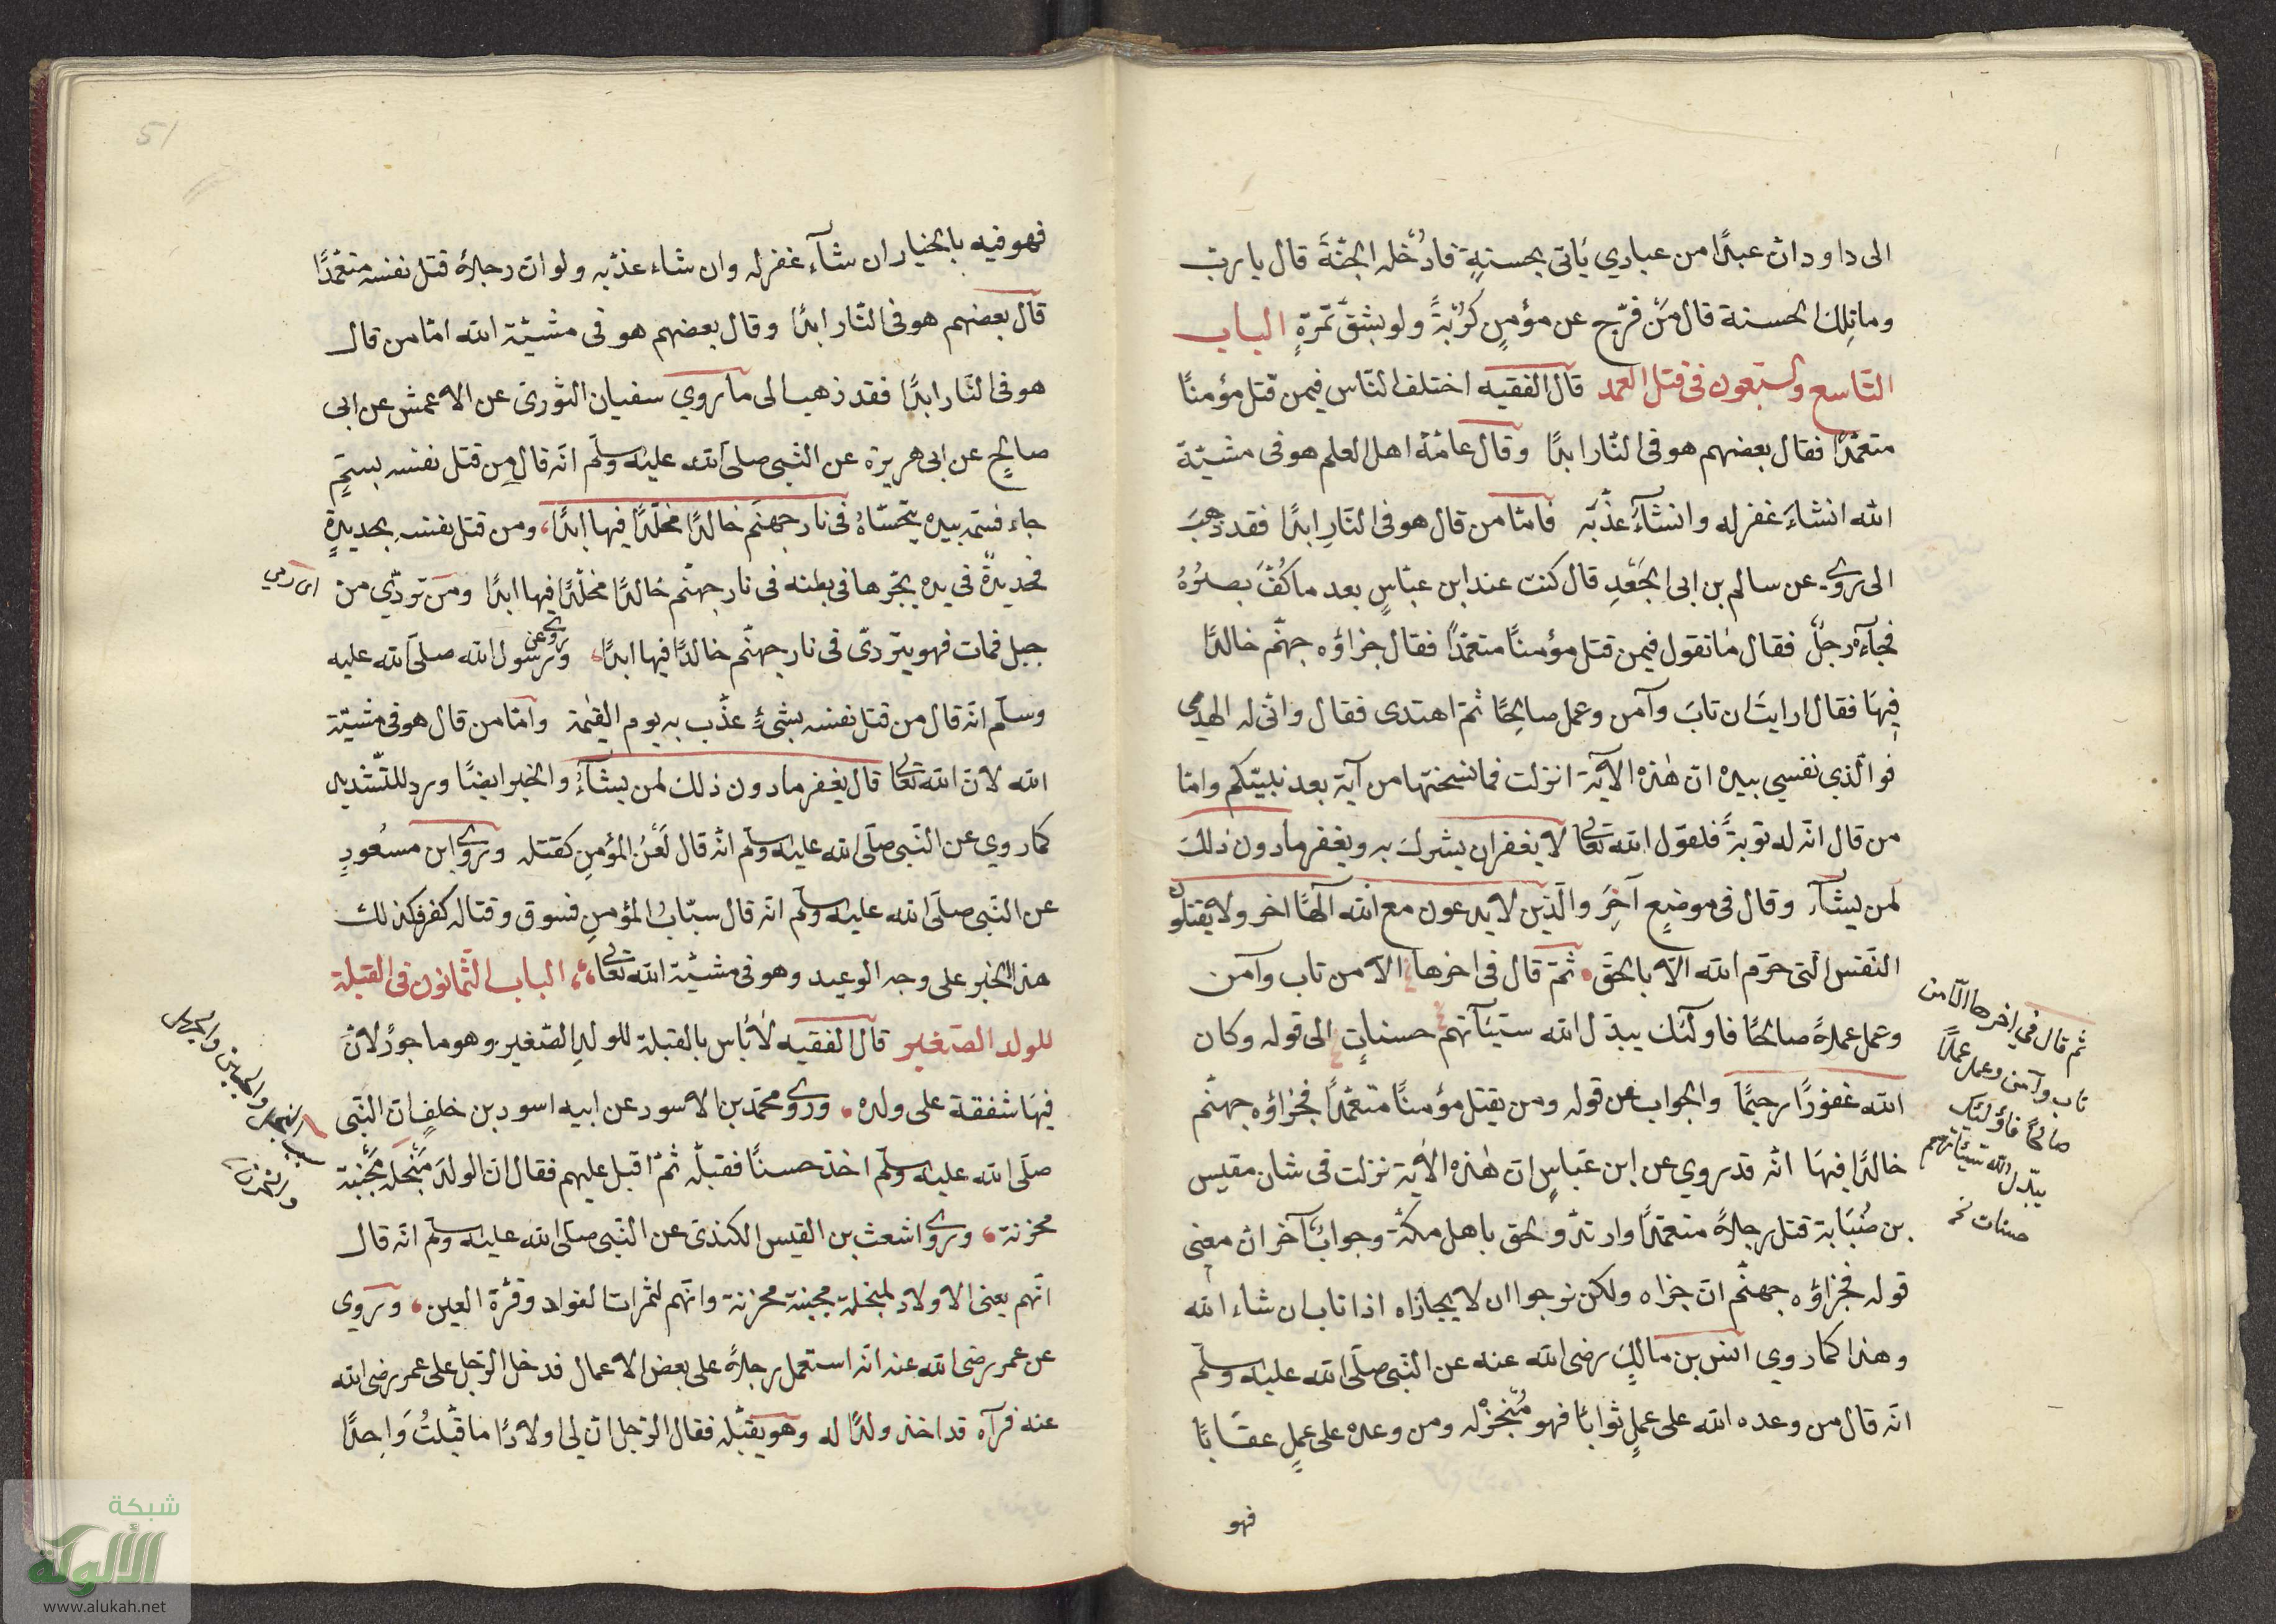 الى داود ان عبدا من عبادي يأتى بحسنةٍ فادخله الجنّة قال يا رب
وما تلك الحسنة قال مَن فرّج عن مؤمنٍ كُرْبَةً ولو بشقّ تمرةٍ الباب
التاسع والسبعون فى قتل العمد قال الفقيه اختلف الناس فيمن قتل مؤمنًا
متعمّدًا فقال بعضهم هو فى النار ابدًا وقال عامّة اهل العلم هو فى مشيّة
الله انشاءَ غفر له وانشآءَ عذّبه فامّا من قال هو فى النّارِ ابدًا فقد ذهبَ
الى ما روى عن سالم بن ابى الجَعْدِ قال كنت عند ابن عبّاسٍ بعد ما كُفَّ بصرُهُ
فجآءه رجلٌ فقال ما تقول فيمن قتل مؤمنًا متعمّدًا فقال جزاؤه جهنّم خالدًا
فيهَا فقال ارايتَ ان تابَ وآمن وعمل صالحًا ثمّ اهتدى فقال وانّى له الهدى
فو الّذي نفسي بيده انّ هٰذه الآية انزلت فما نسختها من آية بعد نبيّكم وامّا
من قال انّه له توبةً فلقول الله تعالى لا يغفر ان يشرك به ويغفر ما دون ذلكَ
لمن يشآء وقال فى موضعٍ آخرَ والّذين لا يدعون مع الله آلهًا اخر ولا يقتلون
النّفس الّتى حرّم الله الّا بالحقّ ثمّ قال فى اخرها الّا من تاب وآمن
وعمل عملاً صالحًا فاولئك يبدّل الله سيّئآتهم حسناتٍ الى قوله وكان
الله غفورًا رحيمًا والجواب عن قوله ومن يقتل مؤمنًا متعمّدًا فجزاؤه جهنّم
خالدًا فيهَا انّه قد روي عن ابن عبّاسٍ انّ هٰذه الآية نزلت فى شان مقيس
بن صُبَابة قتل رجلاً متعمّدًا وارتدّ ولحق باهل مكّة وجوابٌ آخر انّ معنى
قوله فجزاؤه جهنّم انّ جزاه ولكن نرجوا ان لا يجازاه اذا تاب ان شاء الله
وهذا كما روي انس بن مالكٍ رضى الله عنه عن النّبى صلّى الله عليه وسلّم
انّه قال من وعده الله على عملٍ ثوابًا فهو مُنْجِزٌ له ومن وعده على عملٍ عقابًا
فهو
ثم قال في اخرها الّا من
تاب وآمن وعمل عملًا
صالحًا فأولئك
يبدّل الله سيّئاتهم
حسنات نخـ
51
فهو فيه بالخيار ان شآء غفر له وان شاء عذّبه ولو انّ رجلاً قتل نفسه متعمّدًا
قال بعضهم هو فى النّار ابدًا وقال بعضهم هو فى مشيّة الله امّا من قال
هو فى النّار ابدًا فقد ذهب الى ما روي سفيان الثورىّ عن الاعمش عن ابى
صالحٍ عن ابى هريرة عن النّبى صلّى الله عليه وسلّم انّه قال من قتل نفسه بسمٍّ
جاء فسمّه بيده يتحسّاهُ فى نار جهنّم خالدًا مخلّدًا فيها ابدًا، ومن قتل نفسه بحديدةٍ
فحديدةٌ فى يده يجرّها فى بطنه فى نار جهنّم خالدًا مخلّدًا فيها ابدًا ومن تردّي من
اى رمي
جبل فمات فهو يتردّى فى نار جهنّم خالدًا فيها ابدًا، وروى عن رسول الله صلّى الله عليه
وسلّم انّه قال من قتل نفسه بشىءٍ عذّب به يوم القيٰمة وامّا من قال هو فى مشيّة
الله لانّ الله تعالى قال يغفر ما دون ذلك لمن يشآءُ والخبر ايضًا ورد للتّشديد
كما روي عن النّبى صلّى الله عليه وسلّم انّه قال لَعْنُ المؤمنِ كقتله وروى ابن مسعُودٍ
عن النّبى صلّى الله عليه وسلّم انّه قال سبابُ المؤمنِ فسوق وقتاله كفر فكذلك
هذا الخبر على وجه الوعيد وهو فى مشيّة الله تعالى الباب الثّمانون فى القبلة
للولد الصّغير قال الفقيه لا بأس بالقبلة للولدِ الصّغير وهو ماجورٌ لانّ
فيهَا شفقة على ولده وروى محمّد بن الاسود عن ابيه اسود بن خلفٍ ان النّبى
صلّى الله عليه وسلّم اخذ حسنًا فقبّله ثمّ اقبل عليهم فقال انّ الولدَ مَبْخلة مَجْبنة
محزنة وروى اشعث بن القيس الكندىّ عن النّبى صلّى الله عليه وسلّم انّه قال
انّهم يعنى الاولاد لمبخلة مجبنة محزنة وانّهم لثمرات الفواد وقرّة العين وروي
عن عمر رضى الله عنه انّه استعمل رجلاً على بعض الاعمال فدخل الرّجل على عمر رضى الله
عنه فرآه قد اخذ ولدًا له وهو يقبّله فقال الرّجل انّ لى اولادًا ما قبّلتُ وَاحِدًا
شبكة
الألوكة
www.alukah.net